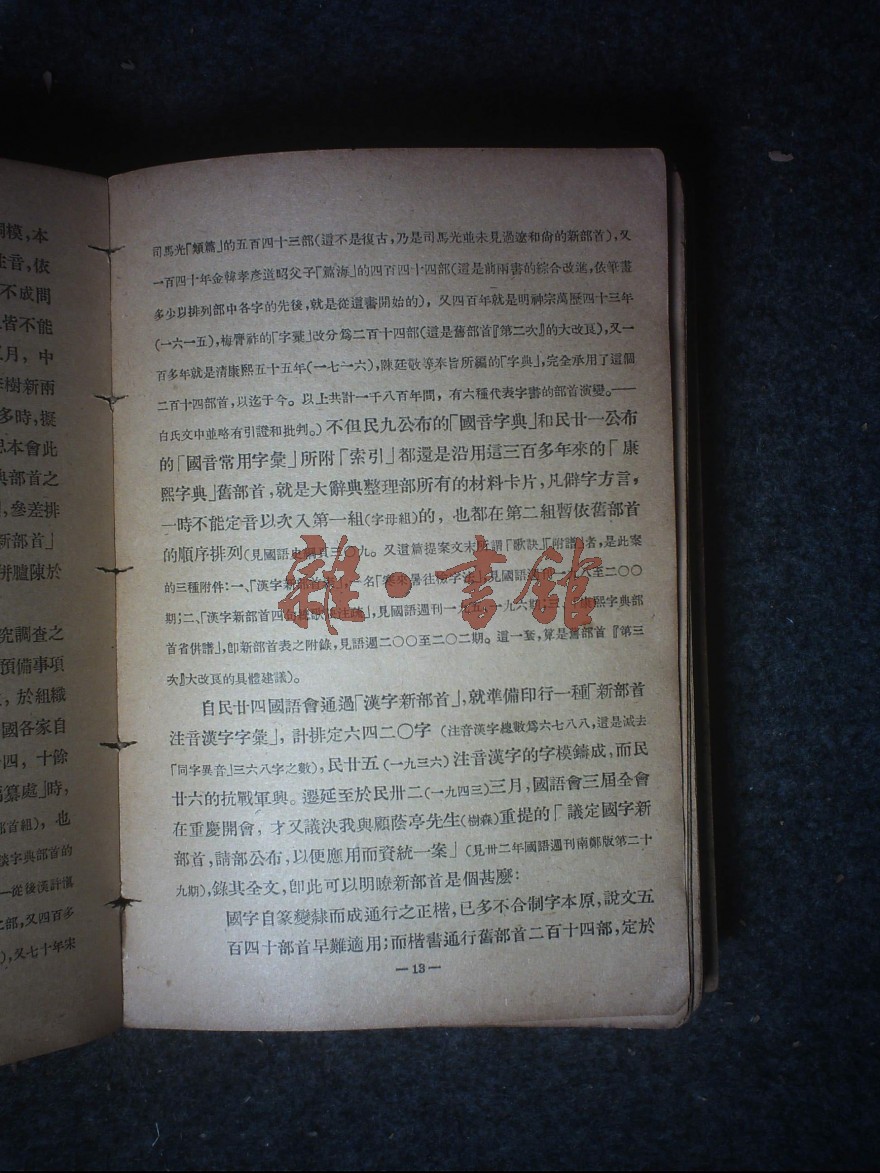 同模，本
注音，依
不成問
皆不能
月，中
樹新兩
多時，擬
本會此
典部首之
，參差排
新部首」
胼臚陳於
究調查之
預備事項
，於組織
國各家自
四，十餘
纂處」時，
部首組)，也
字典部首的
—從後漢計
二部，又四百多
)，又七十年宋
司馬光「類篇」的五百四十三部(這不是復古，乃是司馬光並未見過遼和尙的新部首)，又
一百四十年金韓孝彥道昭父子「篇海」的四百四十四部(這是前兩書的綜合改進，依筆畫
多少以排列部中各字的先後，就是從這書開始的)，又四百年就是明神宗萬歷四十三年
(一六一五)，梅膺祚的「字彙」改分爲二百十四部(這是舊部首『第二次』的大改良)，又一
百多年就是清康熙五十五年(一七一六)，陳廷敬等奉旨所編的「字典」，完全承用了這個
二百十四部首，以迄于今。以上共計一千八百年間，有六種代表字書的部首演變。——
白氏文中並略有引證和批判。)不但民九公布的「國音字典」和民廿一公布
的「國音常用字彙」所附「索引」都還是沿用這三百多年來的「康
熙字典」舊部首，就是大辭典整理部所有的材料卡片，凡僻字方言，
一時不能定音以次入第一組(字母組)的，也都在第二組暫依舊部首
的順序排列(見國語史綱頁三〇九。又這篇提案文末所謂「歌訣」「附譜」者，是此案
的三種附件：一、「漢字新部首表」，一名「寒來暑往檢字法」，見國語週刊一九八至二〇〇
期；二、「漢字新部首四句檢歌訣注疏」，見國語週刊一九五，一九六期；三、「康熙字典部
首省併譜」，卽新部首表之附錄，見語週二〇〇至二〇二期。這一套，算是舊部首『第三
次』大改良的具體建議)。
自民廿四國語會通過「漢字新部首」，就準備印行一種「新部首
注音漢字字彙」，計排定六四二〇字(注音漢字總數爲六七八八，這是減去
「同字異音」三六八字之數)，民廿五(一九三六)注音漢字的字模鑄成，而民
廿六的抗戰軍興。遷延至於民卅二(一九四三)三月，國語會三屆全會
在重慶開會，才又議決我與顧蔭亭先生(樹森)重提的「議定國字新
部首，請部公布，以便應用而資統一案」(見卅二年國語週刊南鄭版第二十
九期)，錄其全文，卽此可以明瞭新部首是個甚麼：
國字自篆變隸而成通行之正楷，已多不合制字本原，說文五
百四十部首早難適用；而楷書通行舊部首二百十四部，定於
— 13 —
雜·書館